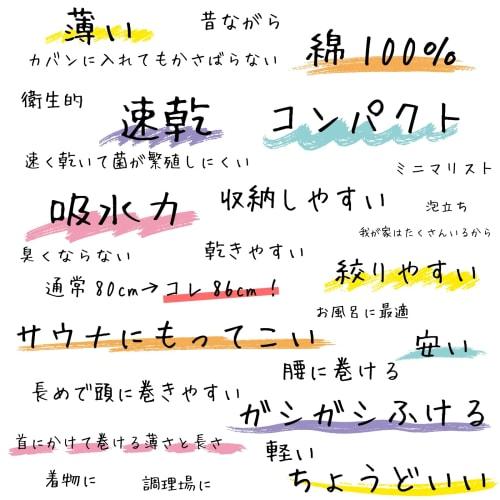 薄い
昔ながら
カバンに入れてもかさばらない
綿100%
衛生的
速乾
コンパクト
速く乾いて菌が繁殖しにくい
ミニマリスト
吸水力
収納しやすい
泡立ち
我が家はたくさんいるから
臭くならない
乾きやすい
絞りやすい
通常80cm→コレ86cm!
お風呂に最適
サウナにもってこい
安い
腰に巻ける
長めで頭に巻きやすい
ガシガシふける
首にかけて巻ける薄さと長さ
軽い
着物に
調理場に
ちょうどいい